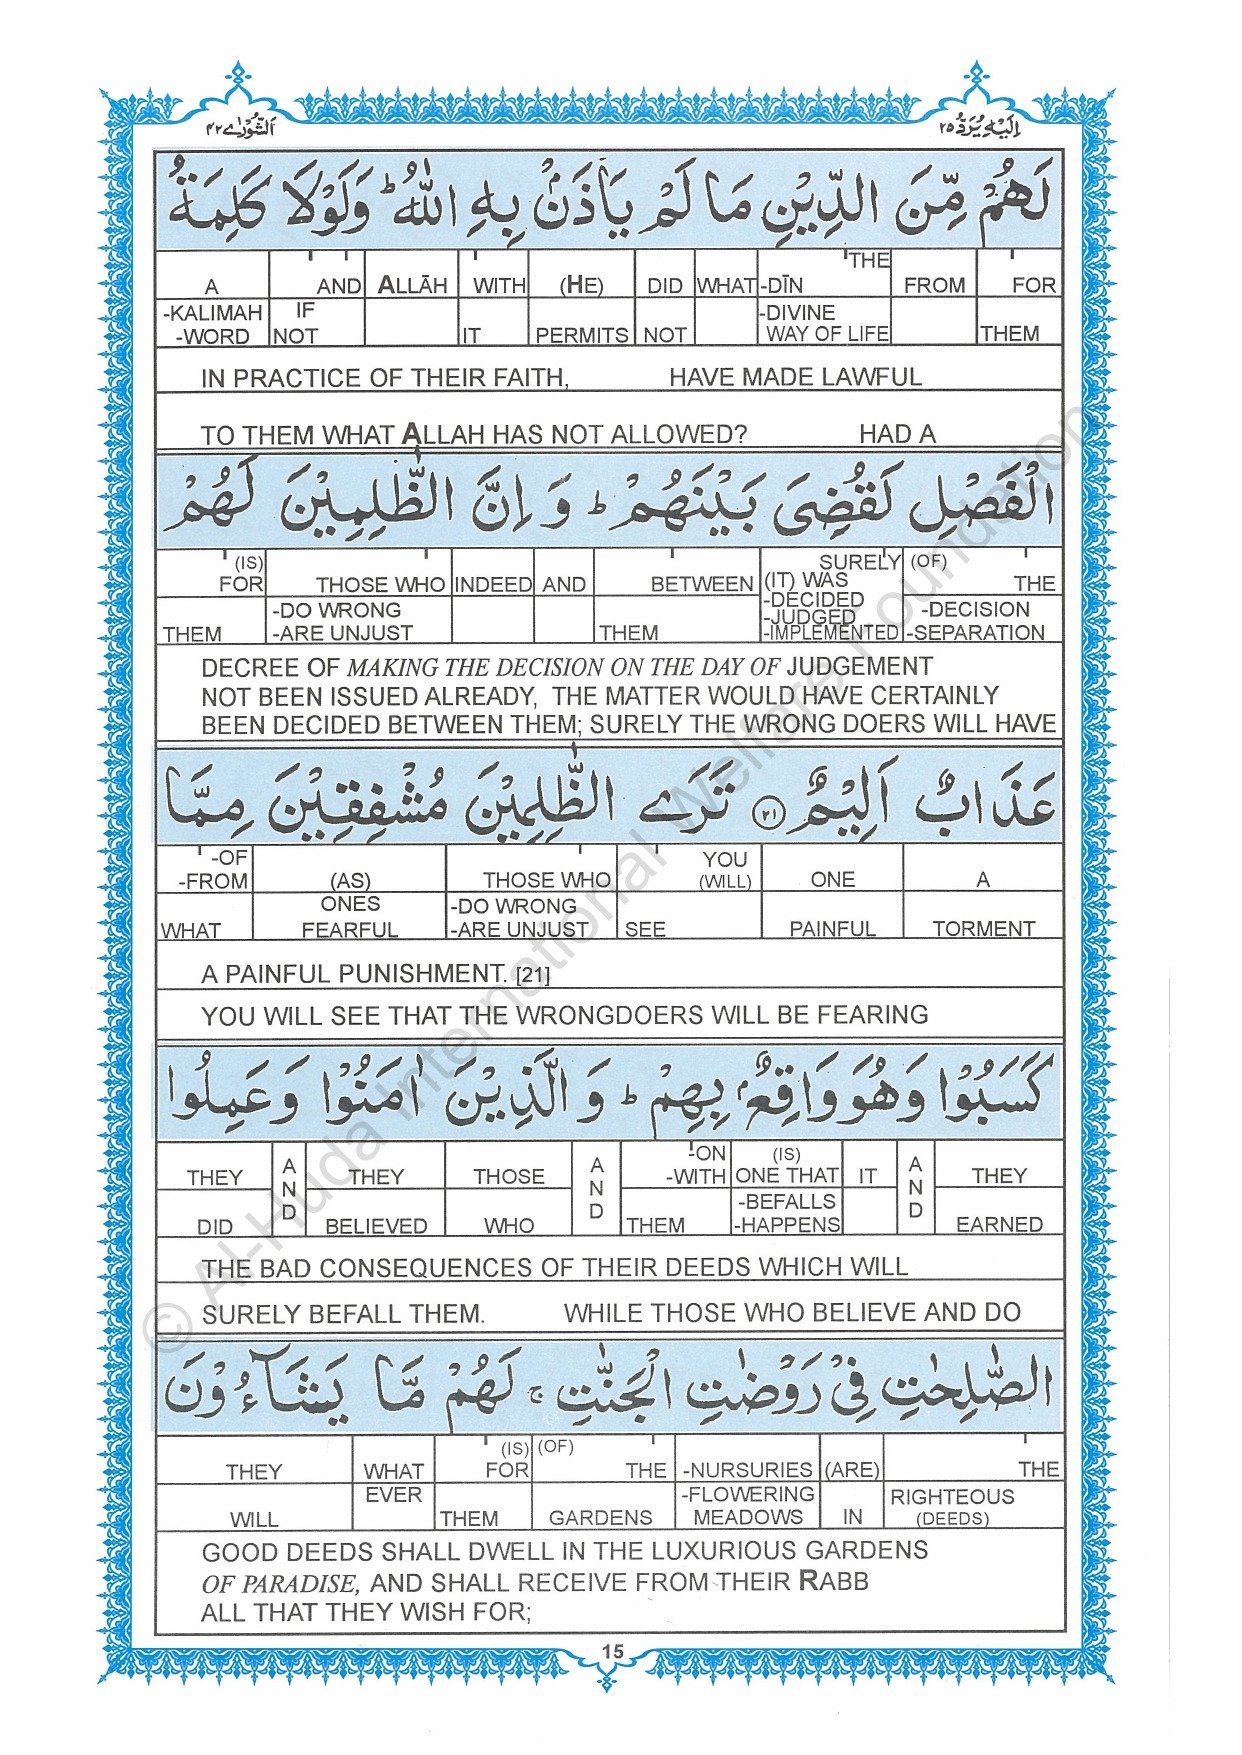 اَلشُّوْرٰے ٤٢
اِلَيْهِ يُرَدُّ ٢٥
لَهُمْ مِّنَ الدِّيْنِ مَا لَمْ يَاْذَنْۢ بِهِ اللّٰهُ ؕ وَلَوْلَا كَلِمَةُ
A AND ALLĀH WITH (HE) DID WHAT -DĪN THE FROM FOR
-KALIMAH IF -DIVINE
-WORD NOT IT PERMITS NOT WAY OF LIFE THEM
IN PRACTICE OF THEIR FAITH, HAVE MADE LAWFUL
TO THEM WHAT ALLAH HAS NOT ALLOWED? HAD A
الْفَصْلِ لَقُضِىَ بَيْنَهُمْ ؕ وَ اِنَّ الظّٰلِمِيْنَ لَهُمْ
(IS) SURELY (OF)
FOR THOSE WHO INDEED AND BETWEEN (IT) WAS THE
-DO WRONG -DECIDED -DECISION
THEM -ARE UNJUST THEM -JUDGED -SEPARATION
-IMPLEMENTED
DECREE OF MAKING THE DECISION ON THE DAY OF JUDGEMENT
NOT BEEN ISSUED ALREADY, THE MATTER WOULD HAVE CERTAINLY
BEEN DECIDED BETWEEN THEM; SURELY THE WRONG DOERS WILL HAVE
عَذَابٌ اَلِيْمٌ ٢١ تَرَے الظّٰلِمِيْنَ مُشْفِقِيْنَ مِمَّا
-OF YOU
-FROM (AS) THOSE WHO (WILL) ONE A
ONES -DO WRONG
WHAT FEARFUL -ARE UNJUST SEE PAINFUL TORMENT
A PAINFUL PUNISHMENT. [21]
YOU WILL SEE THAT THE WRONGDOERS WILL BE FEARING
كَسَبُوْا وَهُوَ وَاقِعٌۢ بِهِمْ ؕ وَ الَّذِيْنَ اٰمَنُوْا وَ عَمِلُوا
-ON (IS)
THEY AND THEY THOSE AND -WITH ONE THAT IT AND THEY
-BEFALLS
DID BELIEVED WHO THEM -HAPPENS EARNED
THE BAD CONSEQUENCES OF THEIR DEEDS WHICH WILL
SURELY BEFALL THEM. WHILE THOSE WHO BELIEVE AND DO
الصّٰلِحٰتِ فِىْ رَوْضٰتِ الْجَنّٰتِ ۚ لَهُمْ مَّا يَشَآءُوْنَ
(IS) (OF)
THEY WHAT FOR THE -NURSURIES (ARE) THE
EVER -FLOWERING RIGHTEOUS
WILL THEM GARDENS MEADOWS IN (DEEDS)
GOOD DEEDS SHALL DWELL IN THE LUXURIOUS GARDENS
OF PARADISE, AND SHALL RECEIVE FROM THEIR RABB
ALL THAT THEY WISH FOR;
15
© Al-Huda International Welfare Foundation